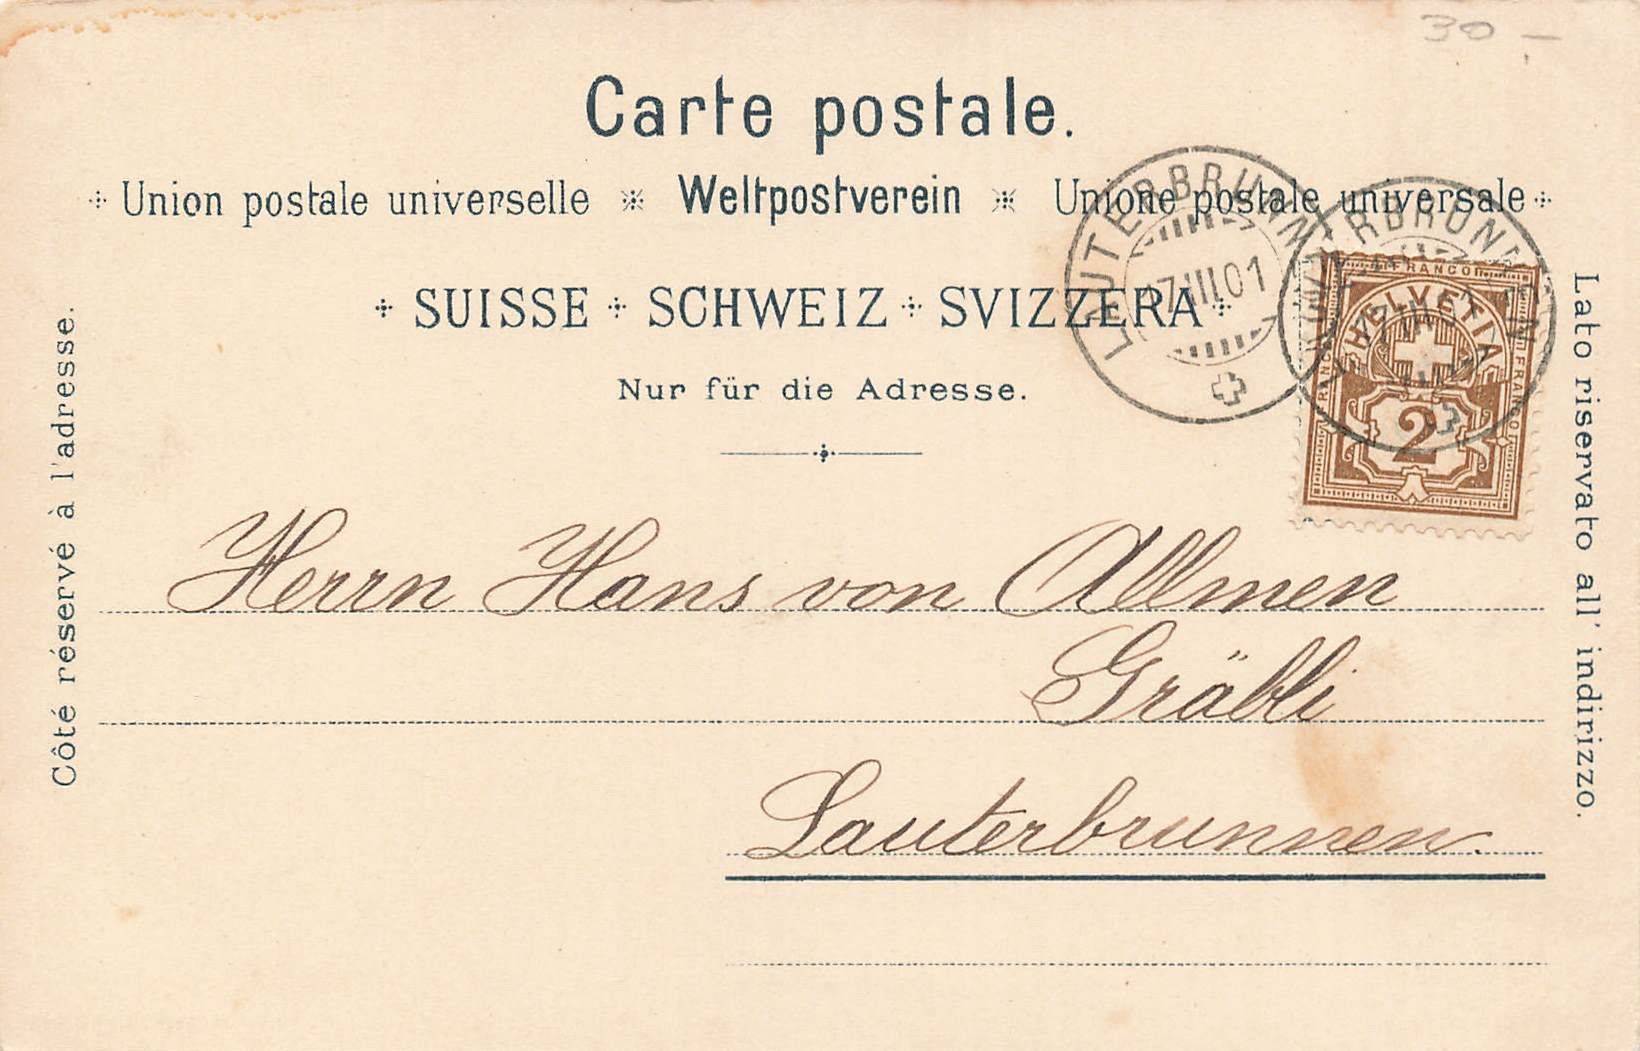 30 –
Carte postale.
Union postale universelle Weltpostverein Unione postale universale
SUISSE SCHWEIZ SVIZZERA
Nur für die Adresse.
LAUTERBRUNNEN
17.III.01
LAUTERBRUNNEN
17.III.01
FRANCO
FRANCO
FRANCO
HELVETIA
2
Côté réservé à l'adresse.
Lato riservato all' indirizzo.
Herrn Hans von Allmen
Gräbli
Lauterbrunnen.